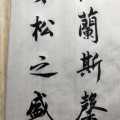 蘭斯馨
松之盛